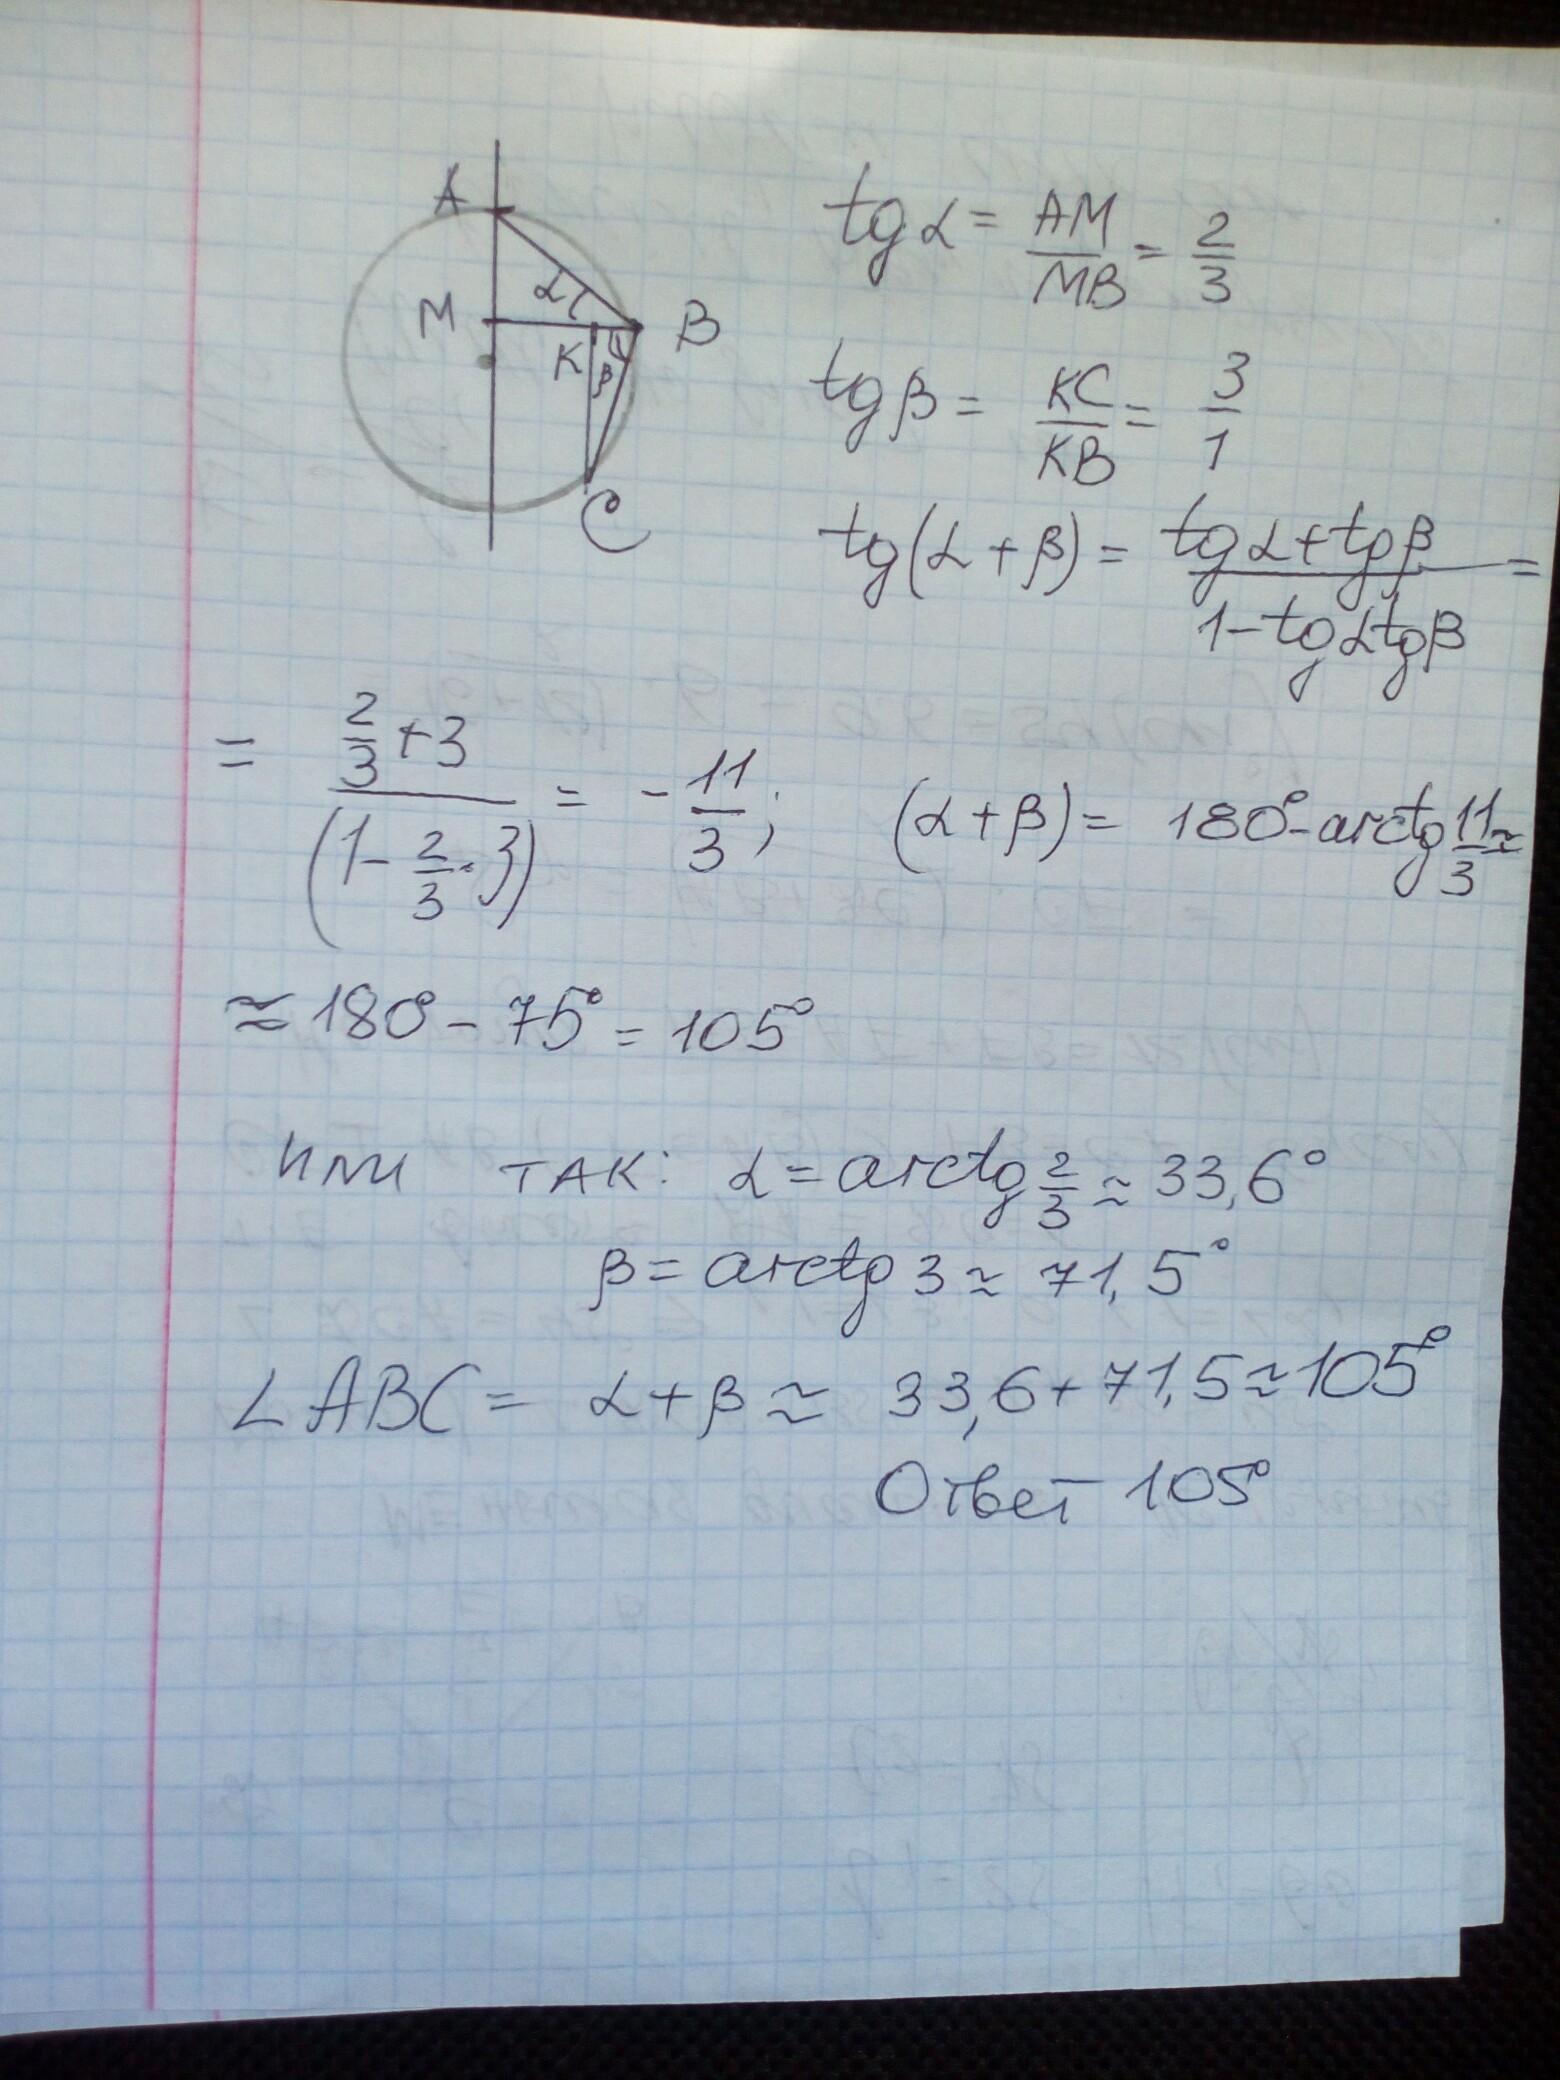 A
M
B
K
C
α
β
tg α = AM/MB = 2/3
tg β = KC/KB = 3/1
tg(α + β) = (tg α + tg β)/(1 - tg α tg β) =
= (2/3 + 3)/(1 - 2/3 · 3) = - 11/3; (α + β) = 180° - arctg 11/3 ≈
≈ 180° - 75° = 105°
или так: α = arctg 2/3 ≈ 33,6°
β = arctg 3 ≈ 71,5°
∠ABC = α + β ≈ 33,6 + 71,5 ≈ 105°
Ответ 105°